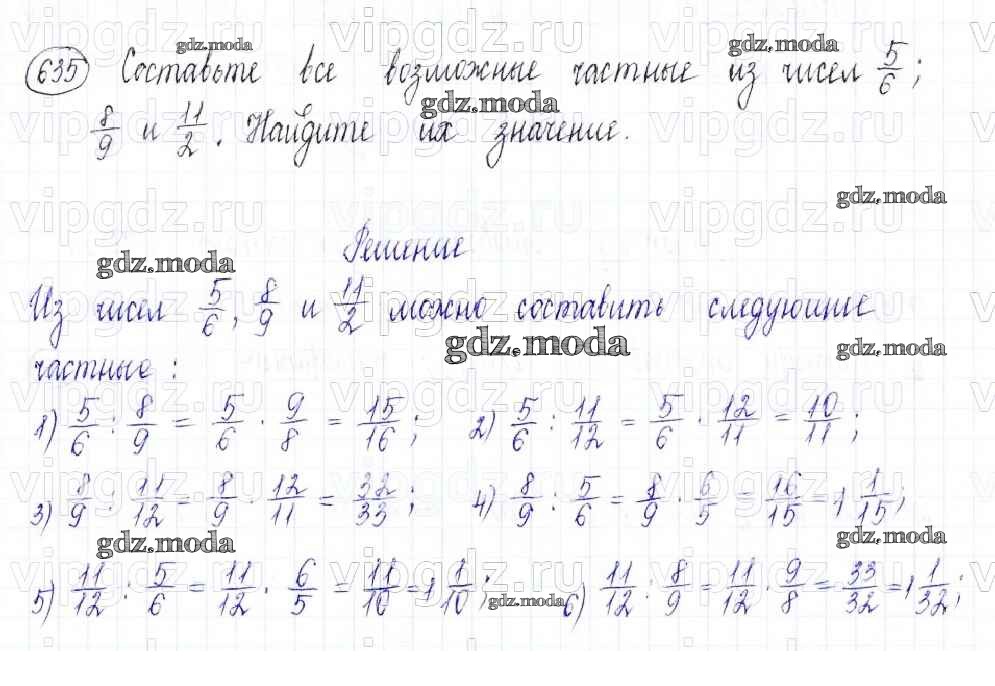 635 Составьте все возможные частные из чисел 5/6;
8/9 и 11/2. Найдите их значение.
Решение
Из чисел 5/6, 8/9 и 11/2 можно составить следующие
частные:
1) 5/6 : 8/9 = 5/6 · 9/8 = 15/16; 2) 5/6 : 11/12 = 5/6 · 12/11 = 10/11;
3) 8/9 : 11/12 = 8/9 · 12/11 = 32/33; 4) 8/9 : 5/6 = 8/9 · 6/5 = 16/15 = 1 1/15;
5) 11/12 : 5/6 = 11/12 · 6/5 = 11/10 = 1 1/10; 6) 11/12 : 8/9 = 11/12 · 9/8 = 33/32 = 1 1/32;
gdz.moda
vipgdz.ru